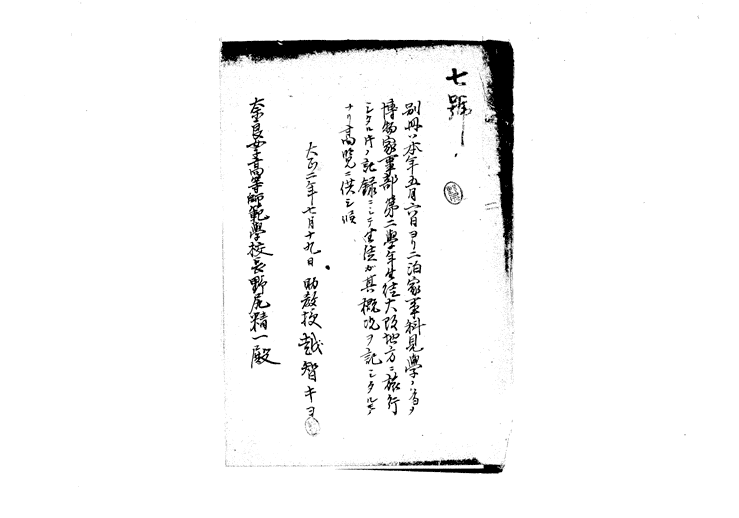 七號
別冊ハ本年五月六日ヨリ二泊家事科見學ノ為メ
博物家事部第二學年生徒大阪地方ニ旅行
シタル時ノ記録ニシテ生徒ガ其概況ヲ記シタルモノ
ナリ高覧ニ供シ候
大正二年七月十九日 助教授 越智キヨ
奈良女子高等師範學校長野尻精一殿